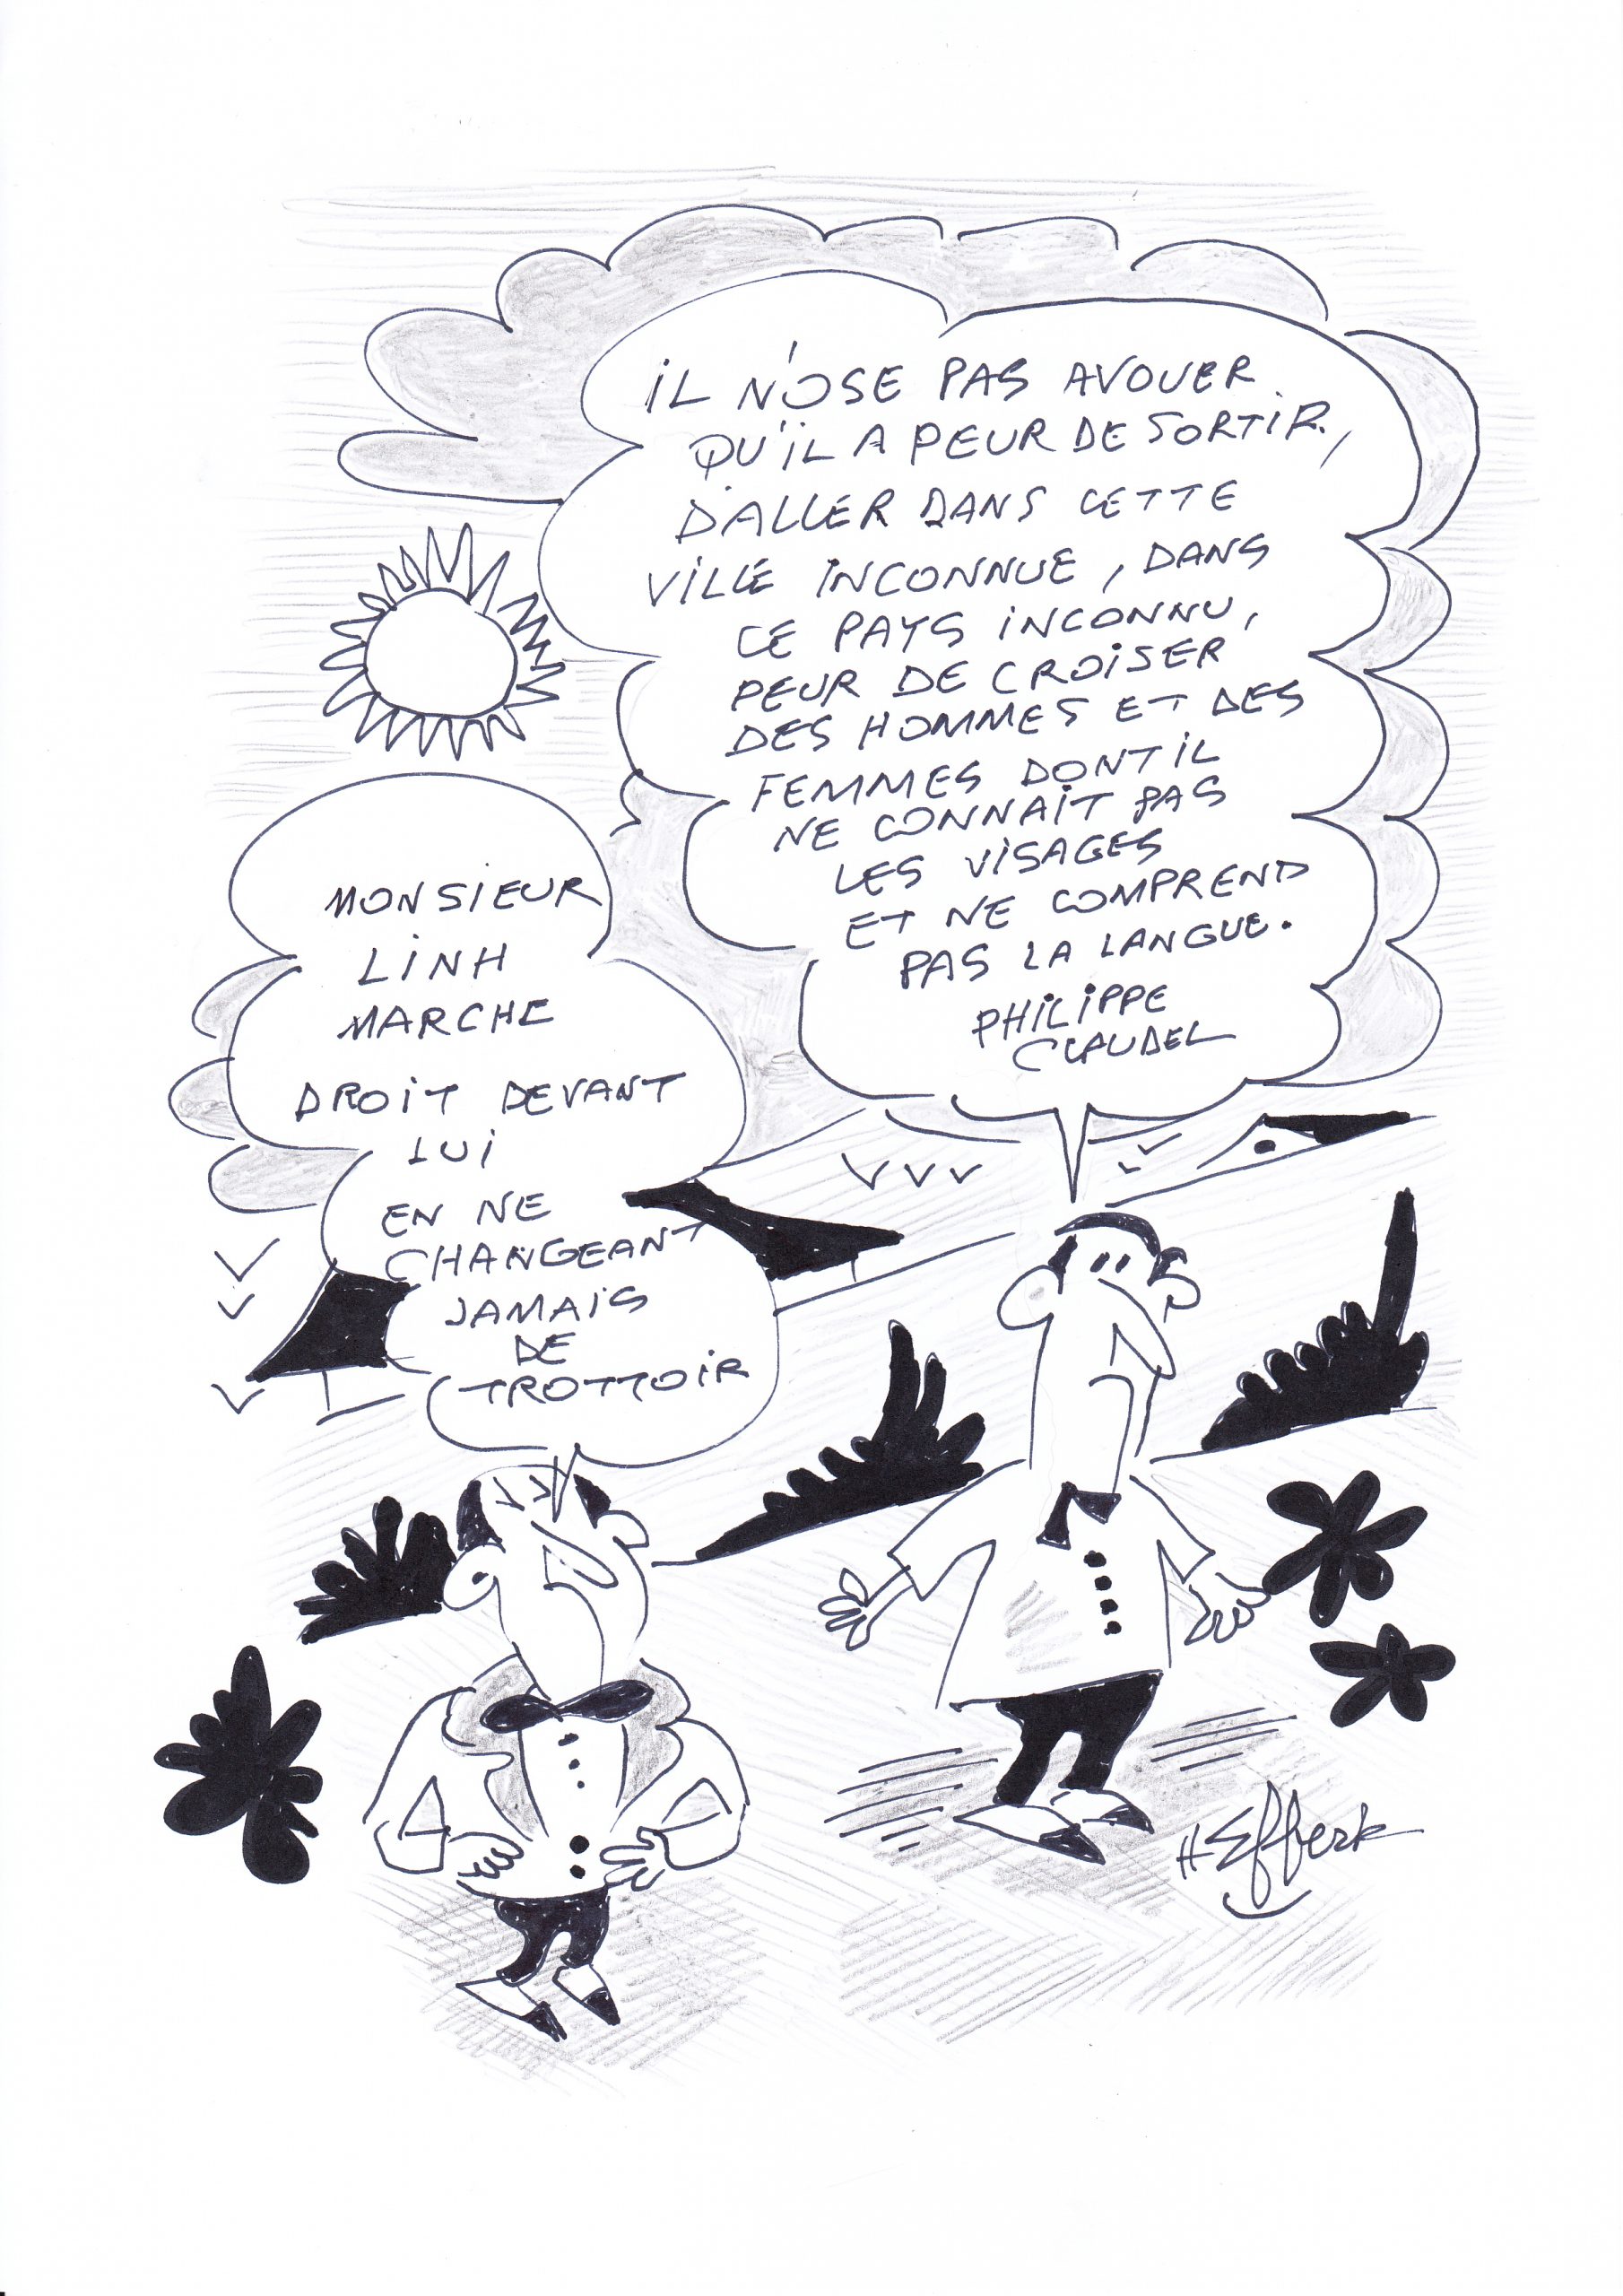 IL N'OSE PAS AVOUER
QU'IL A PEUR DE SORTIR,
D'ALLER DANS CETTE
VILLE INCONNUE, DANS
CE PAYS INCONNU,
PEUR DE CROISER
DES HOMMES ET DES
FEMMES DONT IL
NE CONNAIT PAS
LES VISAGES
ET NE COMPREND
PAS LA LANGUE.
PHILIPPE
CLAUDEL
MONSIEUR
LINH
MARCHE
DROIT DEVANT
LUI
EN NE
CHANGEANT
JAMAIS
DE
TROTTOIR
H Efferk